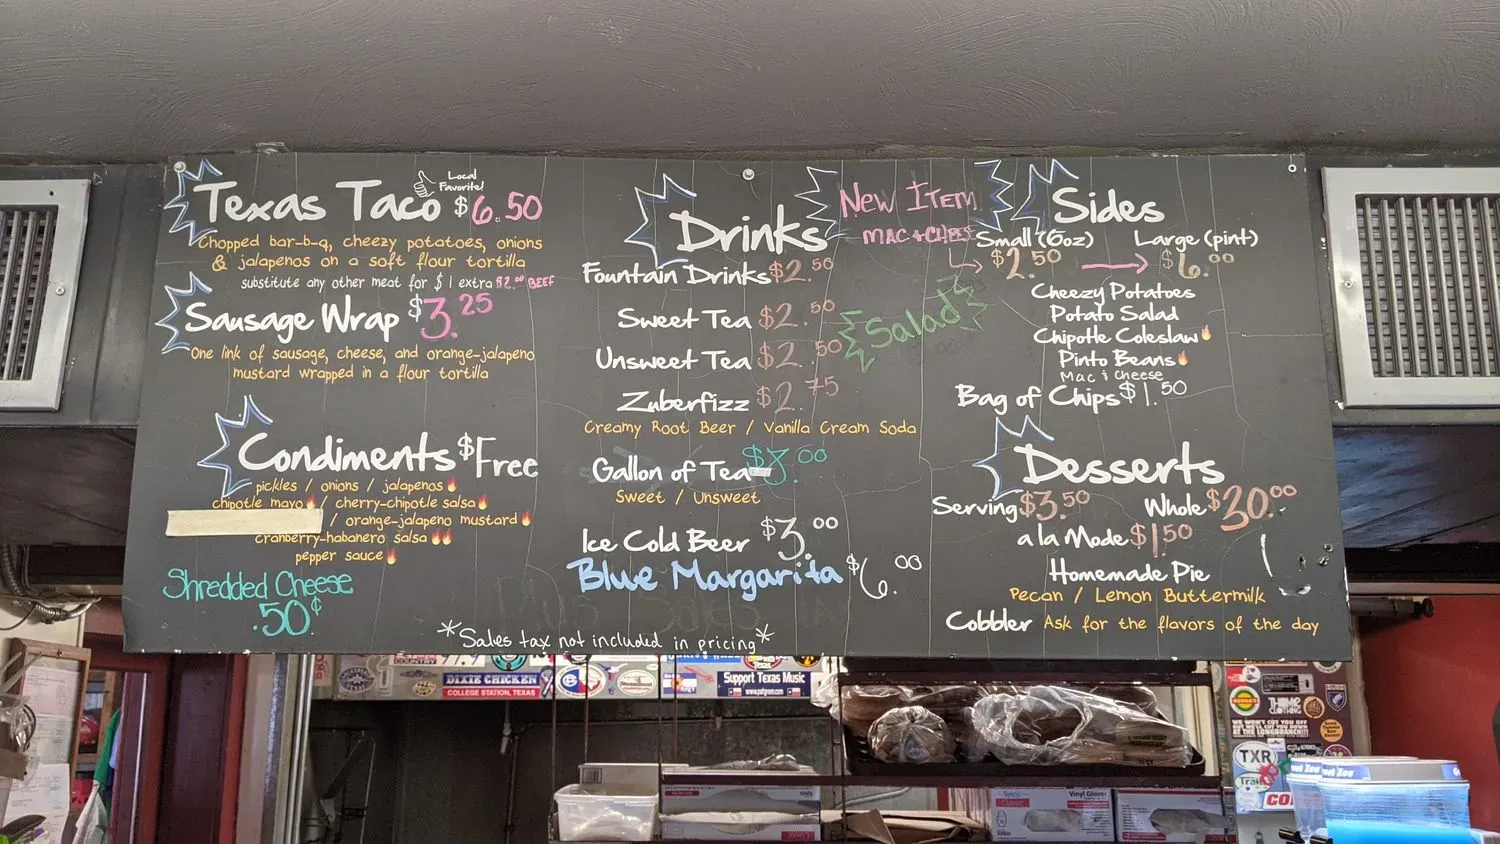 Texas Taco $6.50
Local Favorite!
Chopped bar-b-q, cheezy potatoes, onions
& jalapenos on a soft flour tortilla
substitute any other meat for $1 extra $2.00 BEEF
Sausage Wrap $3.25
One link of sausage, cheese, and orange-jalapeno
mustard wrapped in a flour tortilla
Condiments $Free
pickles / onions / jalapenos
chipotle mayo / cherry-chipotle salsa
/ orange-jalapeno mustard
cranberry-habanero salsa
pepper sauce
Shredded Cheese
.50¢
Drinks
Fountain Drinks $2.50
Sweet Tea $2.50
Unsweet Tea $2.50
Zuberfizz $2.75
Creamy Root Beer / Vanilla Cream Soda
Gallon of Tea $3.00
Sweet / Unsweet
Ice Cold Beer $3.00
Blue Margarita $6.00
*Sales tax not included in pricing*
New Item
MAC + CHEESE
Salad
Sides
Small (6oz) Large (pint)
$2.50 $6.00
Cheezy Potatoes
Potato Salad
Chipotle Coleslaw
Pinto Beans
Mac & Cheese
Bag of Chips $1.50
Desserts
Serving $3.50 Whole $20.00
a la Mode $1.50
Homemade Pie
Pecan / Lemon Buttermilk
Cobbler Ask for the flavors of the day
DIXIE CHICKEN
COLLEGE STATION, TEXAS
Support Texas Music
Sysco
Classic
Vinyl Gloves
TXR